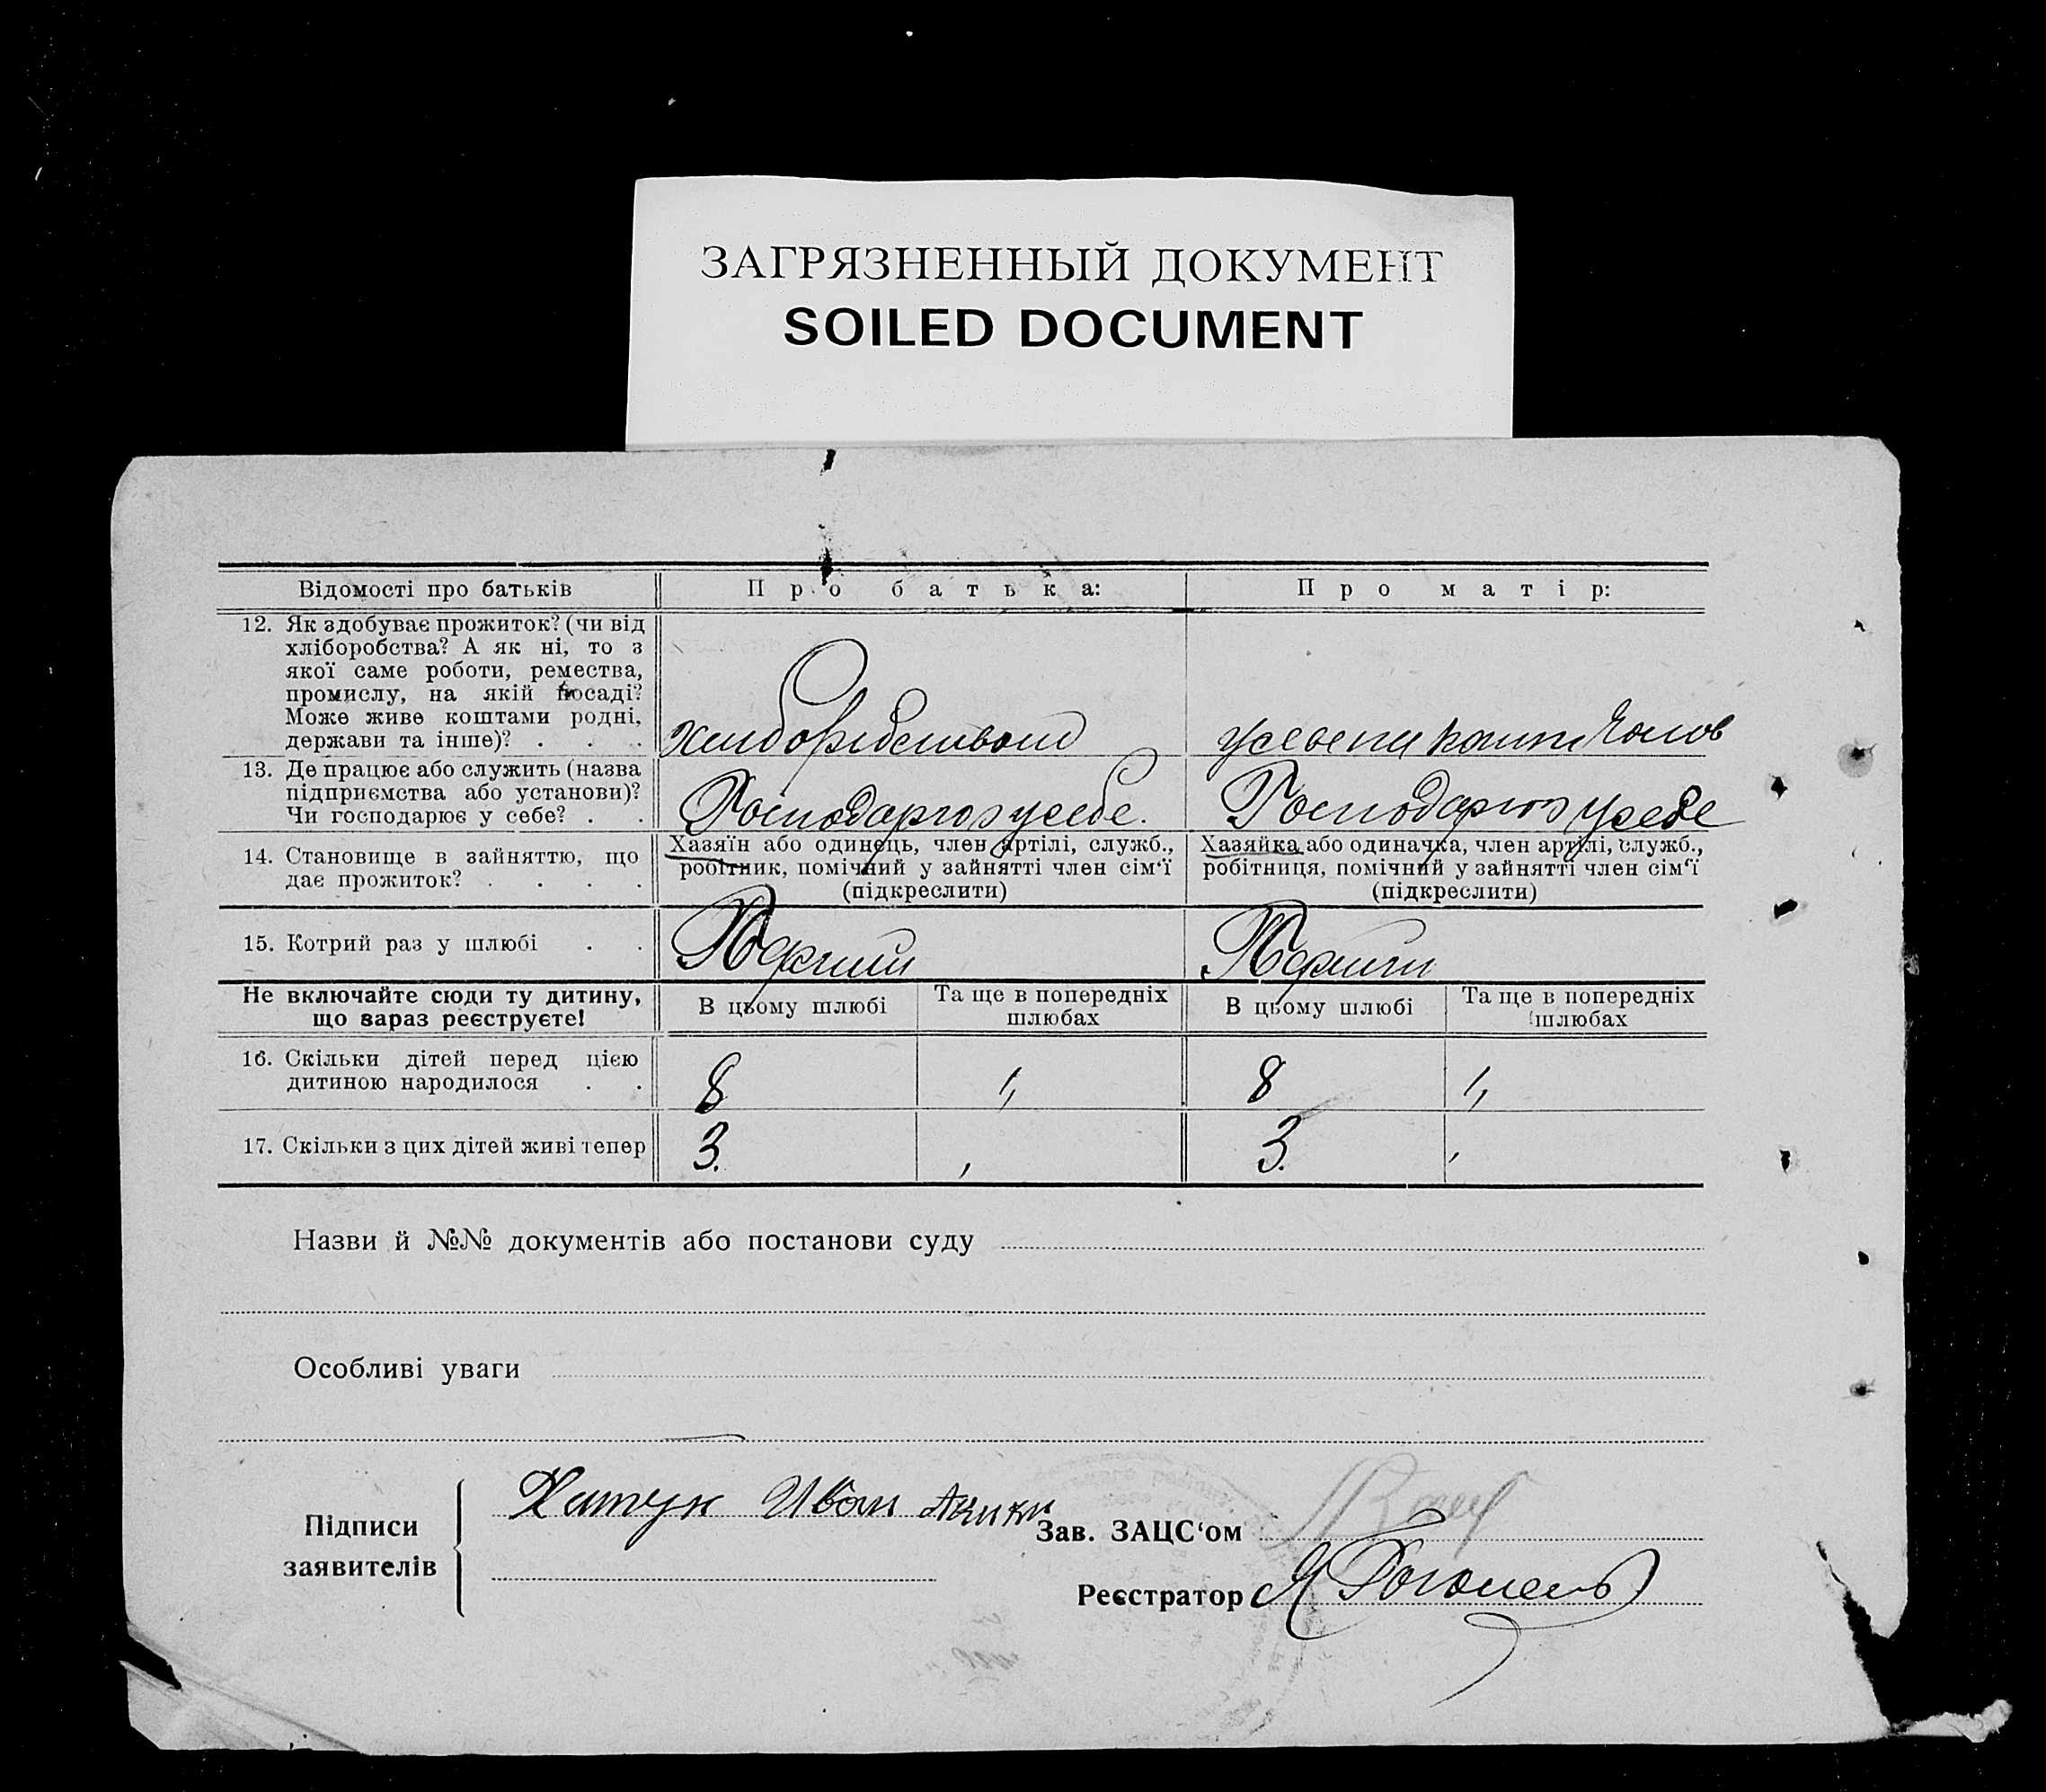 ЗАГРЯЗНЕННЫЙ ДОКУМЕНТ
SOILED DOCUMENT
Відомості про батьків
Про батька:
Про матір:
12. Як здобуває прожиток? (чи від
хліборобства? А як ні, то з
якої саме роботи, ремества,
промислу, на якій посаді?
Може живе коштами родні,
держави та інше)? . . .
13. Де працює або служить (назва
підприємства або установи)?
Чи господарює у себе? . .
Господарює у себе.
Господарює у себе
14. Становище в зайняттю, що
дає прожиток? . . . .
Хазяїн або одинець, член артілі, служб.,
робітник, помічний у зайнятті член сім'ї
(підкреслити)
Хазяйка або одиначка, член артілі, служб.,
робітниця, помічний у зайнятті член сім'ї
(підкреслити)
15. Котрий раз у шлюбі . .
Не включайте сюди ту дитину,
що зараз реєструєте!
В цьому шлюбі
Та ще в попередніх
шлюбах
В цьому шлюбі
Та ще в попередніх
шлюбах
16. Скільки дітей перед цією
дитиною народилося . .
8
8
17. Скільки з цих дітей живі тепер
3.
3.
Назви й №№ документів або постанови суду
Особливі уваги
Підписи
заявителів
Иван
Зав. ЗАЦС'ом
Реєстратор